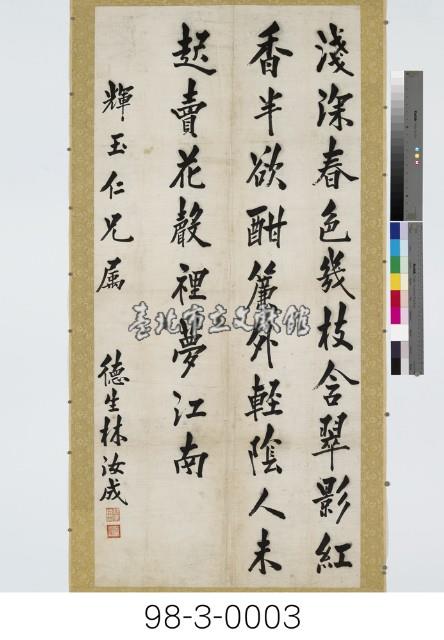 淺深春色幾枝含翠影紅
香半欲酣簾外輕陰人未
起賣花聲裡夢江南
輝玉仁兄屬
德生林汝成
臺北市立文獻館
98-3-0003